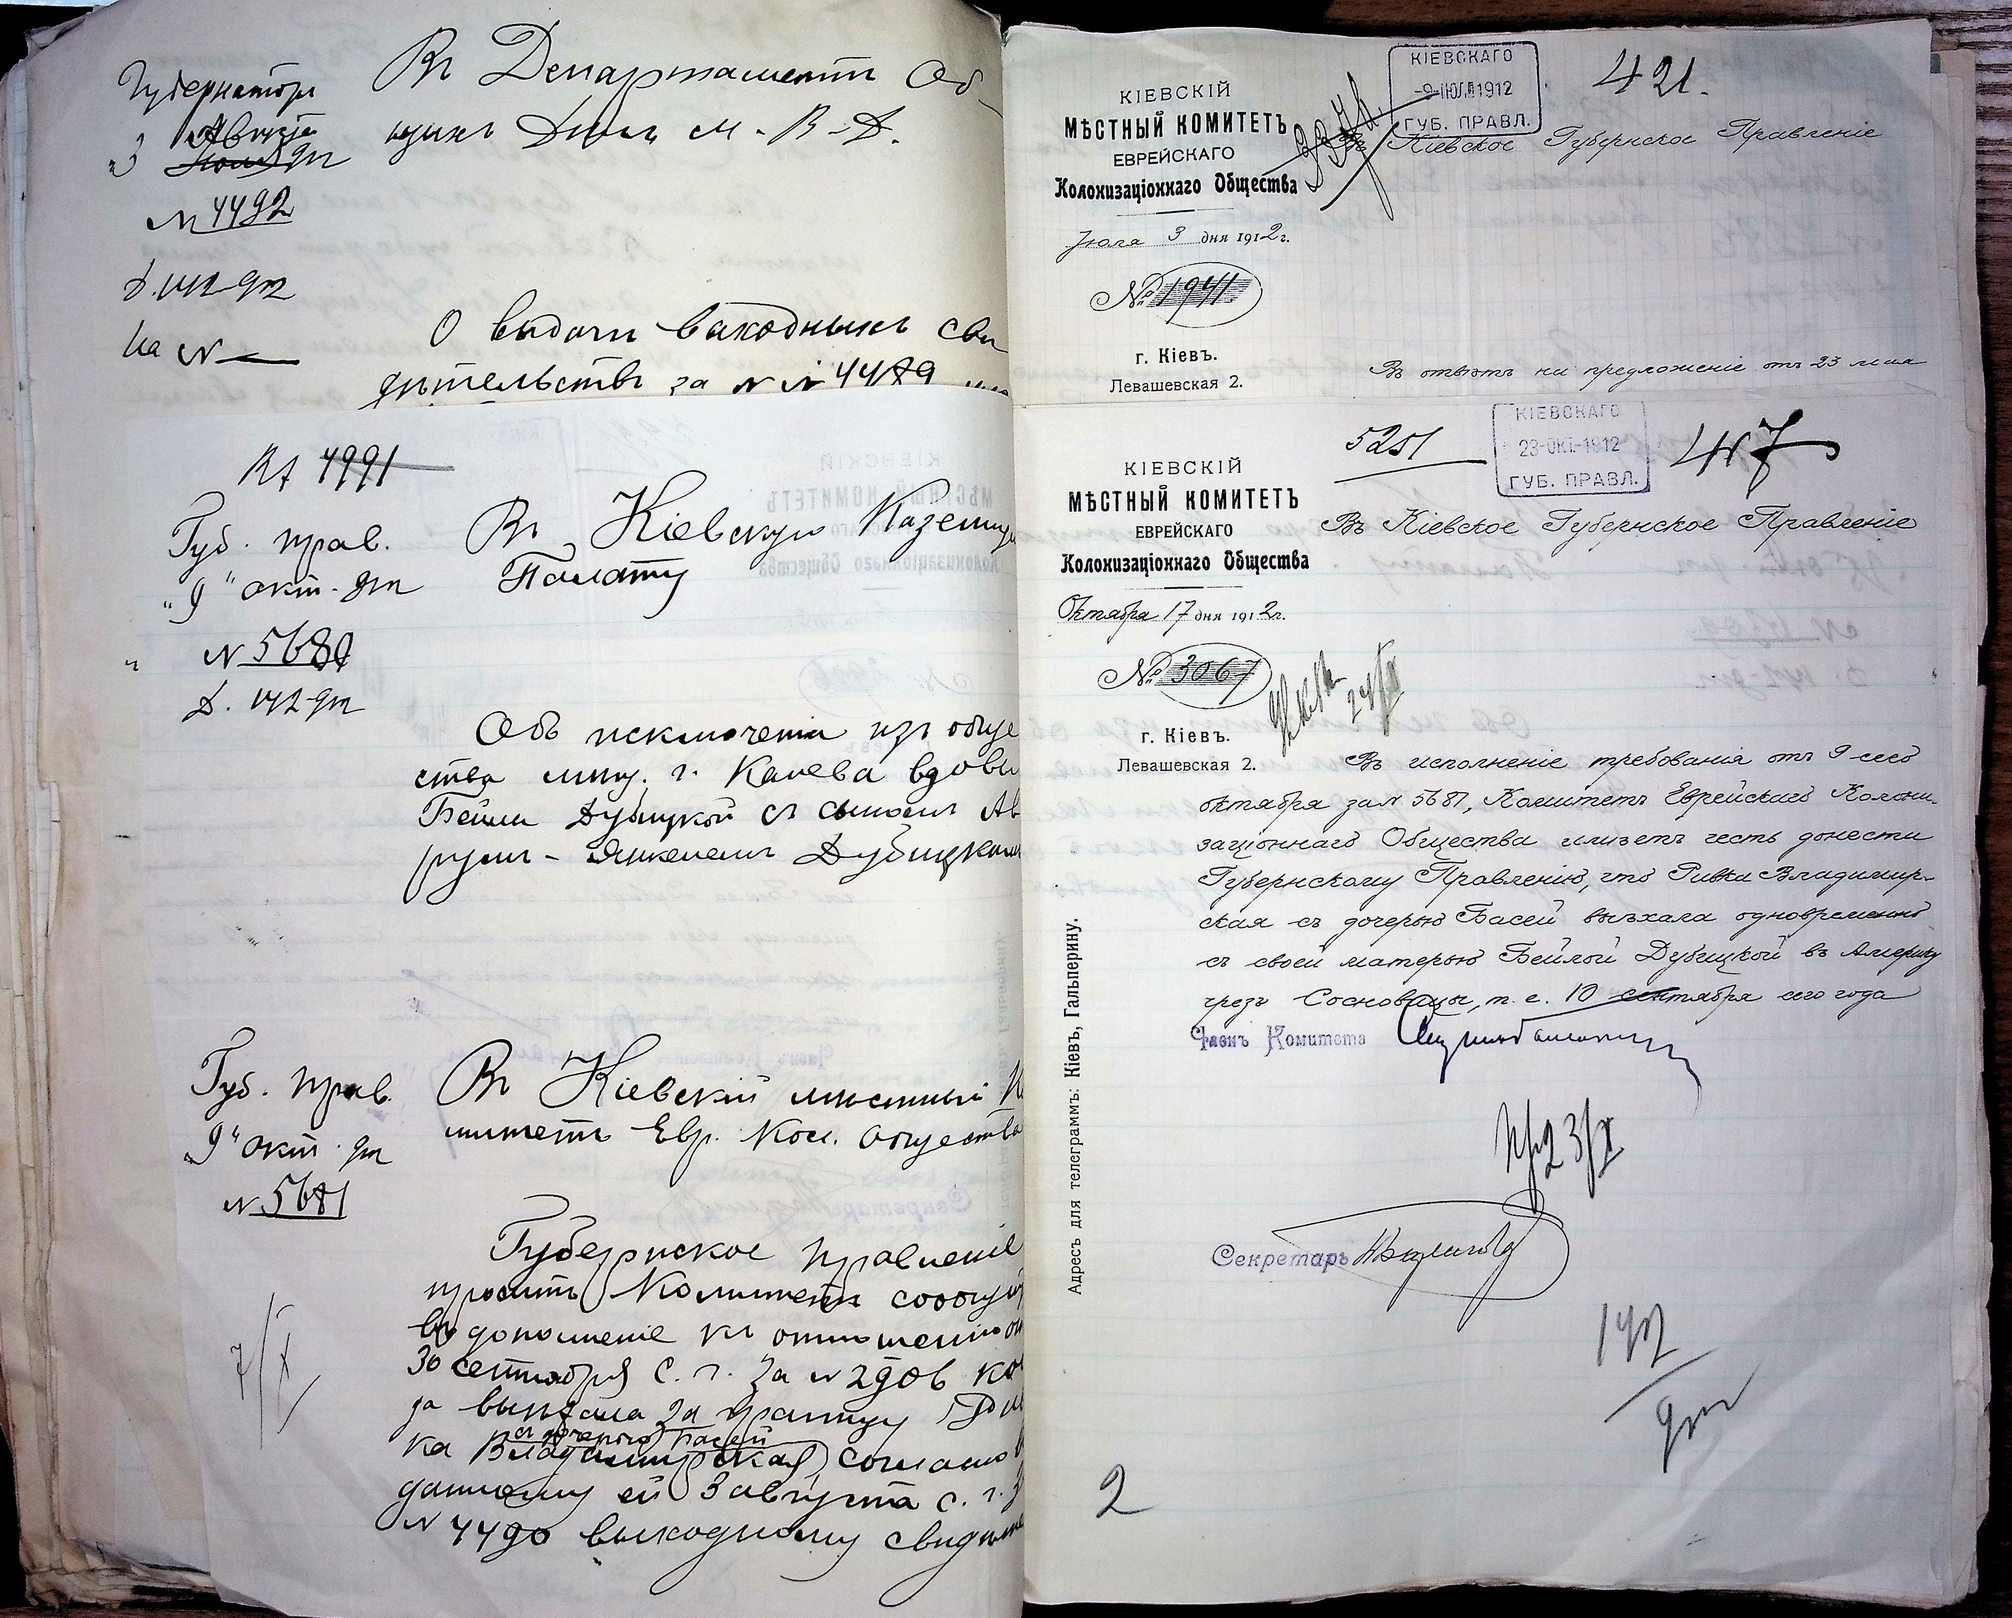 Губернаторъ
Августа
"3 Іюля 912
№ 4492
Д. 142-912
На №
Въ Департаментъ Об-
щихъ Дѣлъ М-В-Д.
О выдачи выходныхъ сви
дѣтельствъ за № № 4489
4991
Губ. Прав.
"9" окт. 912
№ 5680
Д. 142-912
Въ Кіевскую Казенную
Палату
Объ исключеніи изъ обще
ства мѣщ. г. Канева вдовы
Бейлы Дубицкой съ сыномъ Ав
румъ-Янкелемъ Дубицкимъ
Губ. Прав.
"9" окт. 912
№ 5681
Въ Кіевскій мѣстный Ко
митетъ Евр. Кол. Общества
Губернское Правленіе
проситъ Комитетъ сообщить
въ дополненіе къ отношенію отъ
30 сентября с. г. за № 2906 ког
да выѣхала за границу Рив
съ дочерью Басей
ка Владимирская, согласно вы
данному ей 3 августа с. г. за
№ 4490 выходному свидѣтель
7/X
КІЕВСКІЙ
МѢСТНЫЙ КОМИТЕТЪ
ЕВРЕЙСКАГО
Колонизаціоннаго Общества
Іюля 3 дня 1912 г.
№ 1941
г. Кіевъ.
Левашевская 2.
КІЕВСКАГО
-9-ІЮЛЯ 1912
ГУБ. ПРАВЛ.
421.
Въ Кіевское Губернское Правленіе
Въ отвѣтъ на предложеніе отъ 23 мая
КІЕВСКІЙ
МѢСТНЫЙ КОМИТЕТЪ
ЕВРЕЙСКАГО
Колонизаціоннаго Общества
Октября 17 дня 1912 г.
№ 3067
г. Кіевъ.
Левашевская 2.
5251
КІЕВСКАГО
23-ОКТ.1912
ГУБ. ПРАВЛ.
Въ Кіевское Губернское Правленіе
24/X
Въ исполненіе требованія отъ 9 сего
октября за № 5681, Комитетъ Еврейскаго Колони-
заціоннаго Общества имѣетъ честь донести
Губернскому Правленію, что Ривка Владимир-
ская съ дочерью Басей выѣхала одновременно
съ своей матерью Бейлой Дубицкой въ Америку
чрезъ Сосновицы, т. е. 10 сентября сего года
Членъ Комитета
23/X
Секретарь
Адресъ для телеграммъ: Кіевъ, Гальперину.
142
912
2